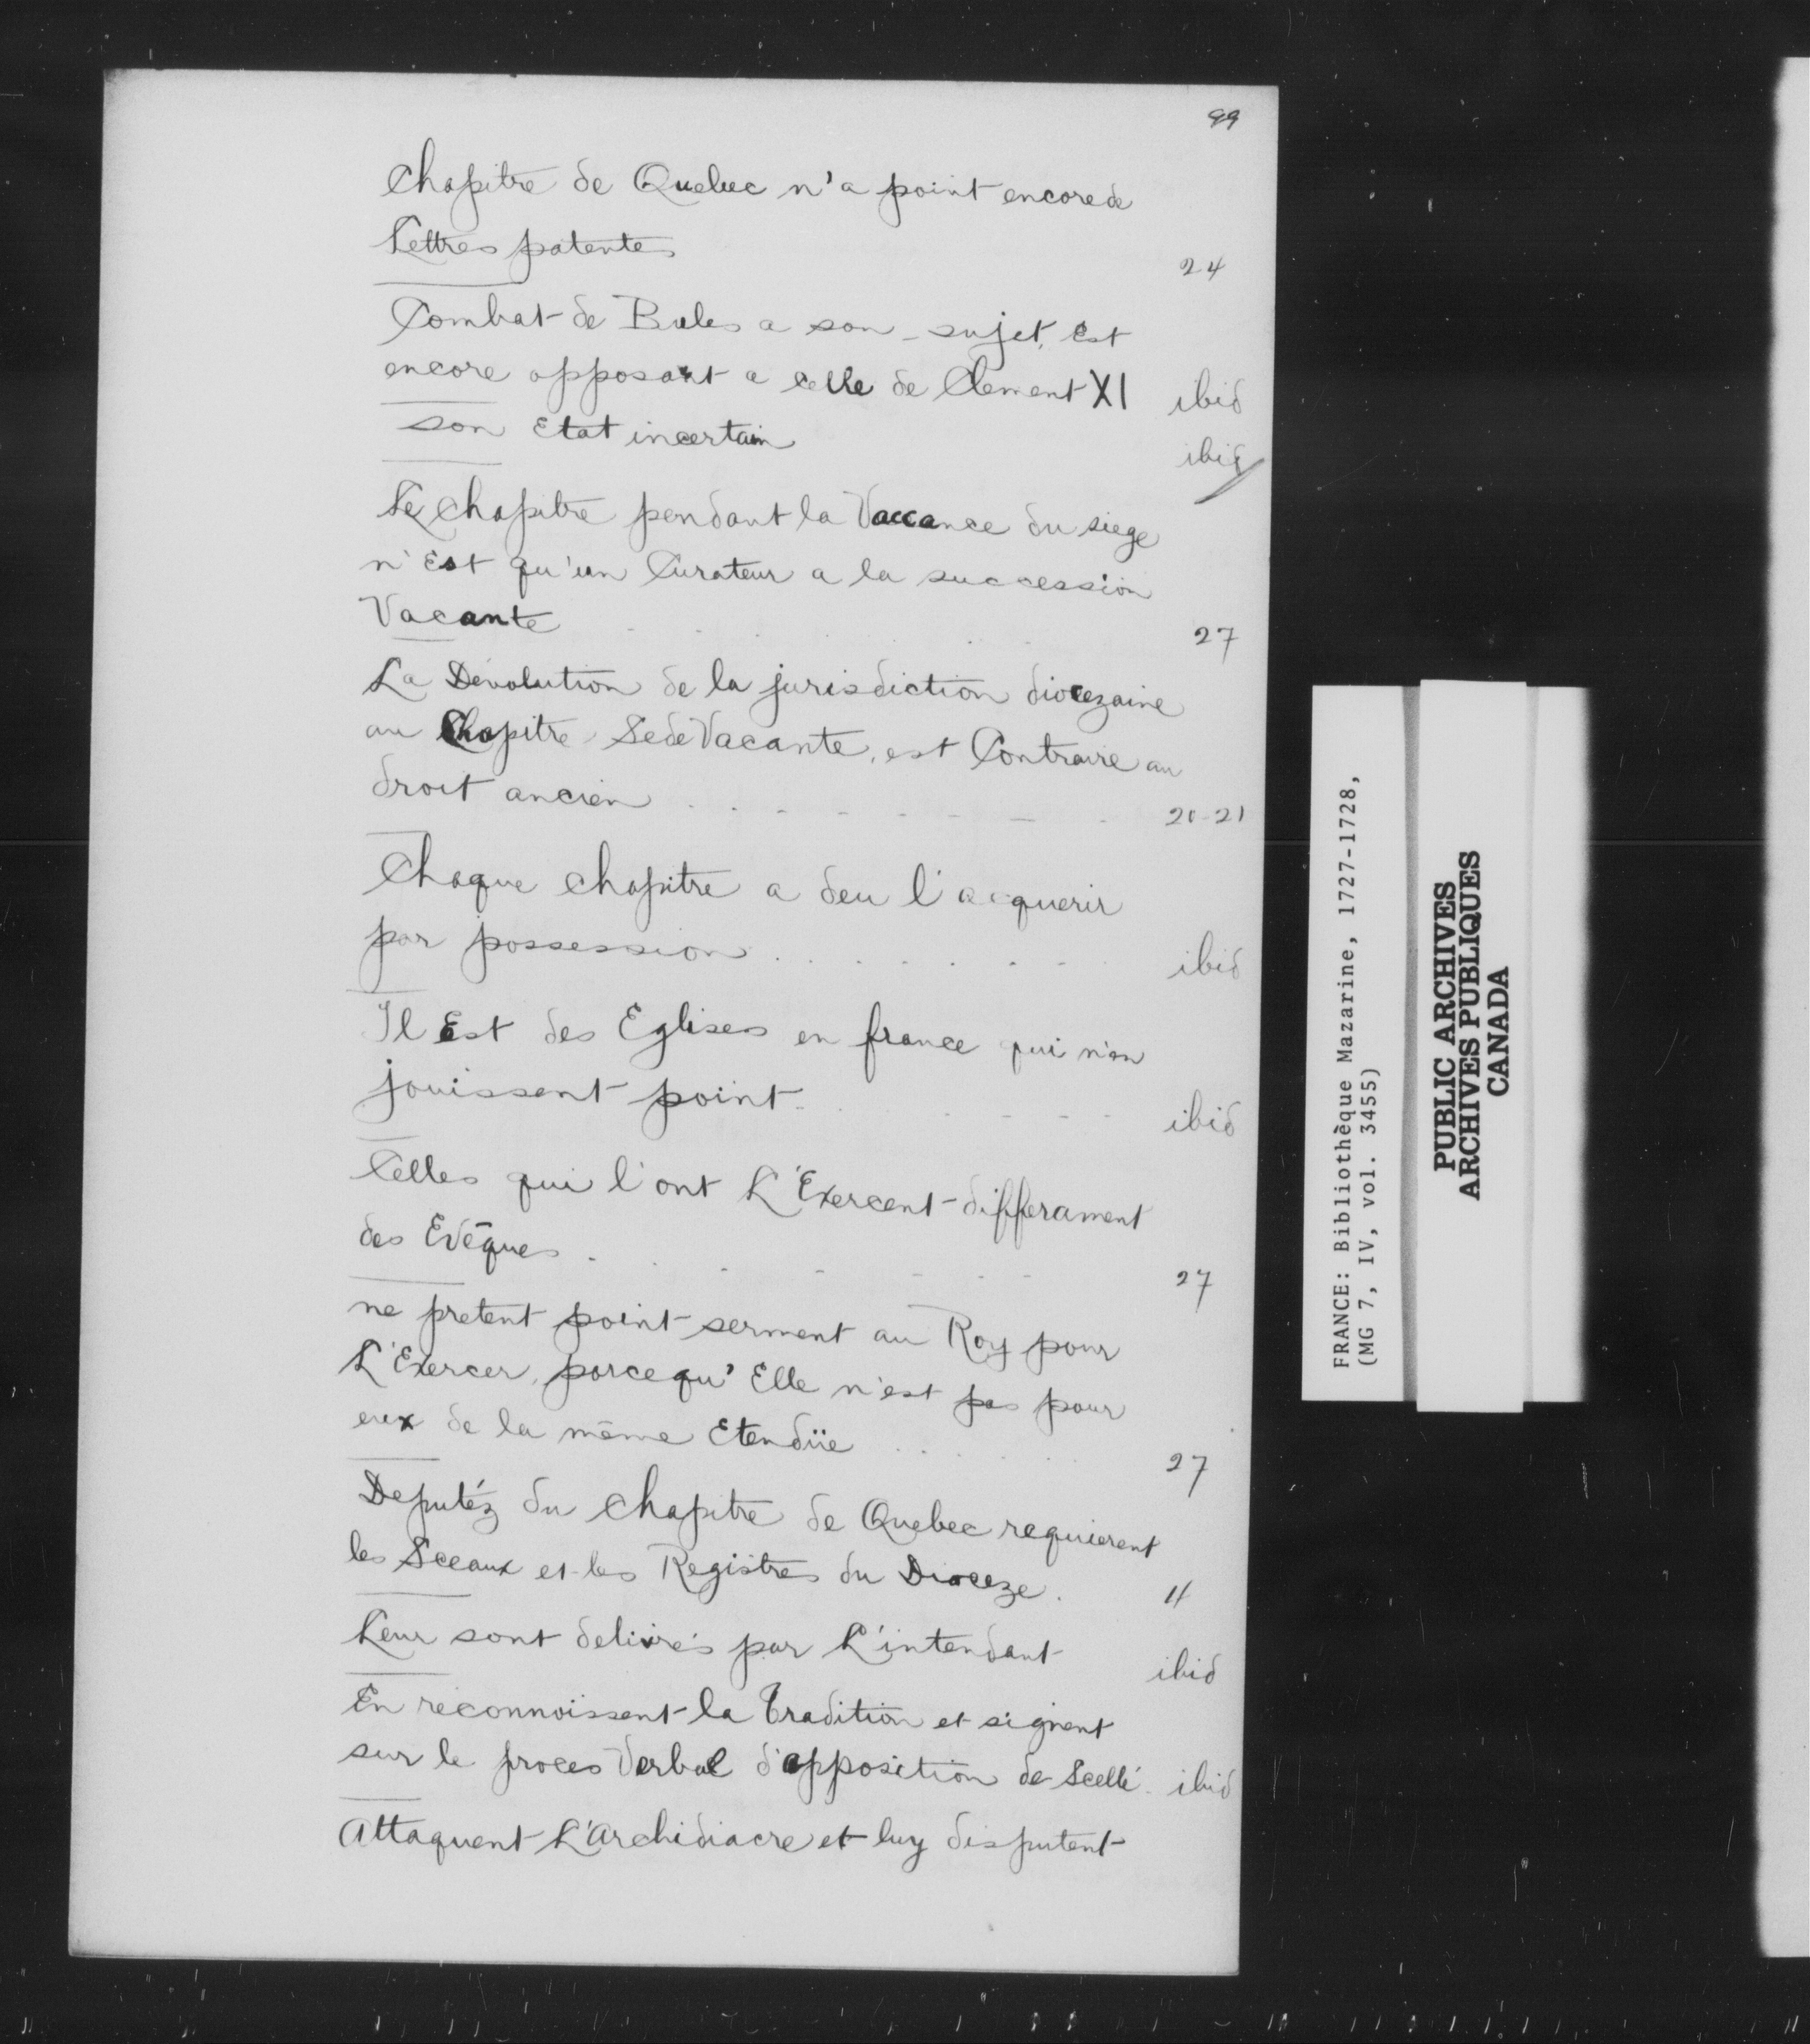 99
Chapitre de Quebec n'a point encore de
Lettres patentes 24
Combat de Bules a son sujet, est
encore opposant a celle de Clement XI ibid
son Etat incertain ibid
Le Chapitre pendant la Vaccance du siege
n'Est qu'un Curateur a la succession
Vacante 27
La Dévolution de la jurisdiction diocezaine
au Chapitre, Sede Vacante, est Contraire au
droit ancien 20-21
Chaque chapitre a deu l'acquerir
par possession ibid
Il Est des Eglises en france qui n'en
jouissent point ibid
Celles qui l'ont L'Exercent differament
des Evêques 27
ne pretent point serment au Roy pour
L'Exercer, parcequ'Elle n'est pas pour
eux de la même Etendüe 27
Deputéz du chapitre de Quebec requierent
les Sceaux et les Registres du Dioceze 4
Leur sont delivrés par L'intendant ibid
En reconnoissent la tradition et signent
sur le proces Verbal d'apposition de Scellé ibid
Attaquent L'Archidiacre et luy disputent
FRANCE: Bibliothèque Mazarine, 1727-1728,
(MG 7, IV, vol. 3455)
PUBLIC ARCHIVES
ARCHIVES PUBLIQUES
CANADA